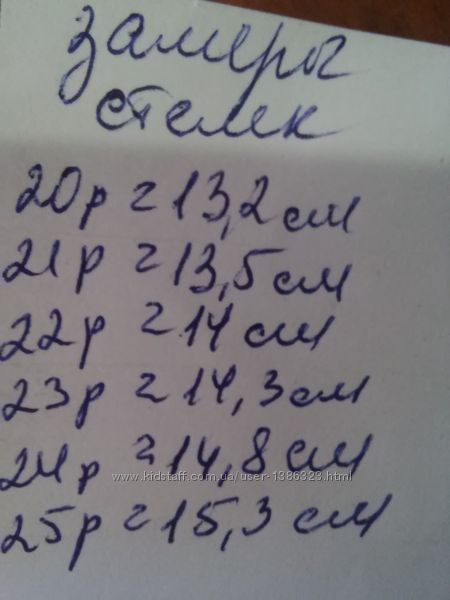 замеры
стелек
20р = 13,2 см
21р = 13,5 см
22р = 14 см
23р = 14,3 см
24р = 14,8 см
www.kidstaff.com.ua/user-1386323.html
25р = 15,3 см